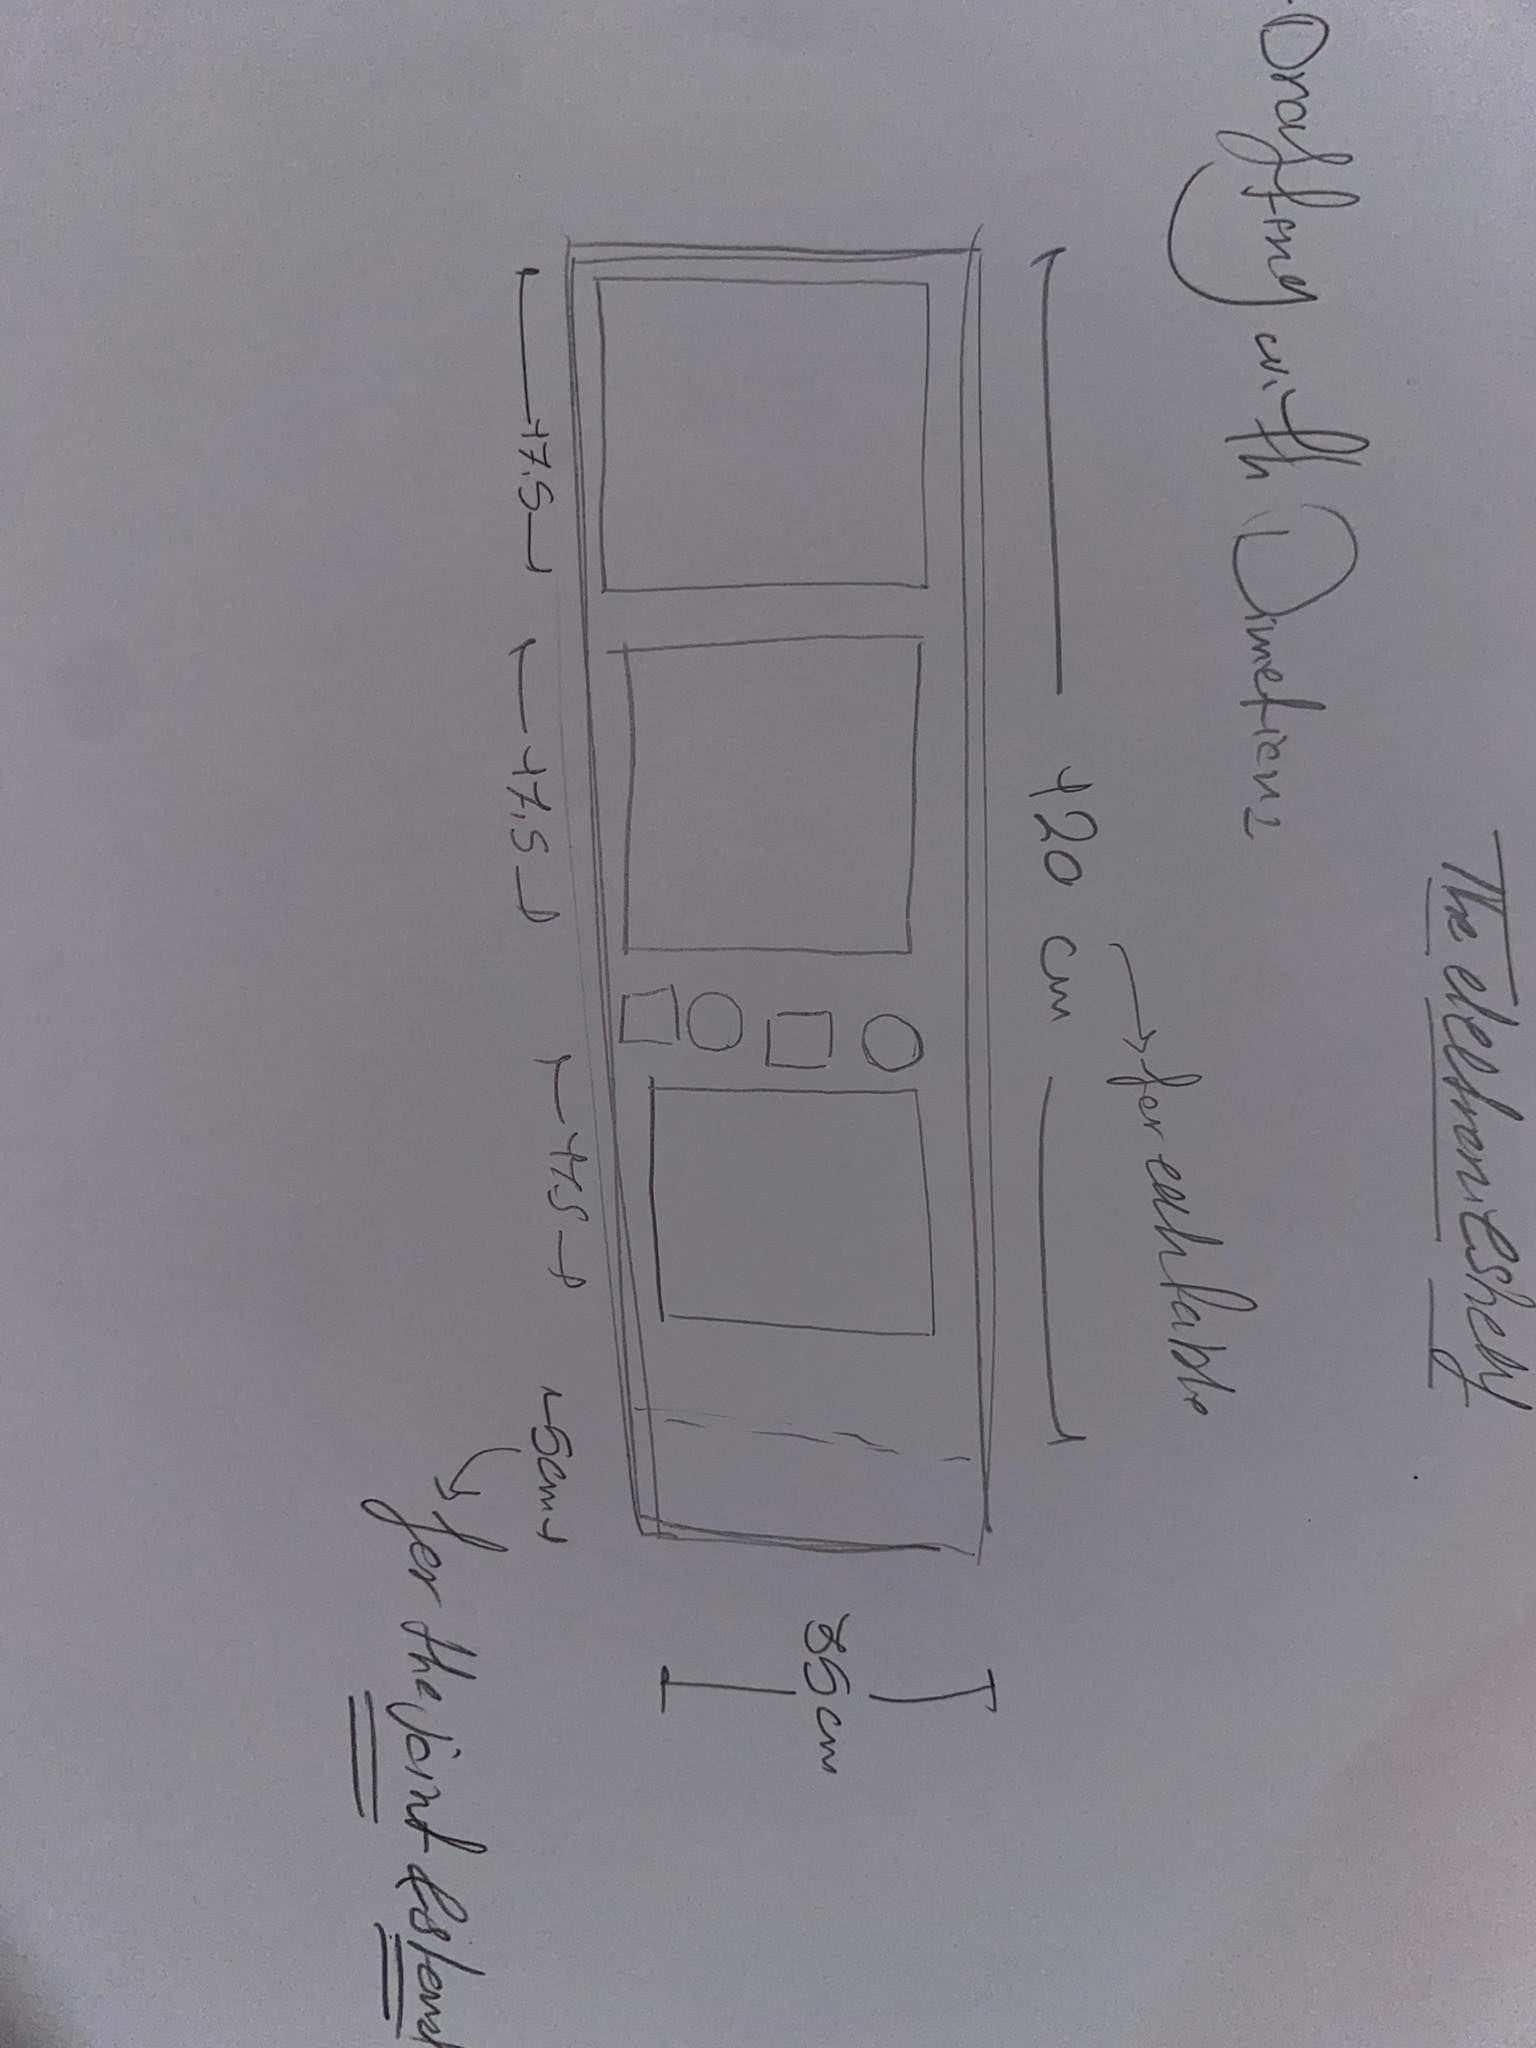 The electronic shelf
Drafting with Dimetions
→ for each table
120 cm
35 cm
17.5
17,5
17.5
5cm
for the joint &